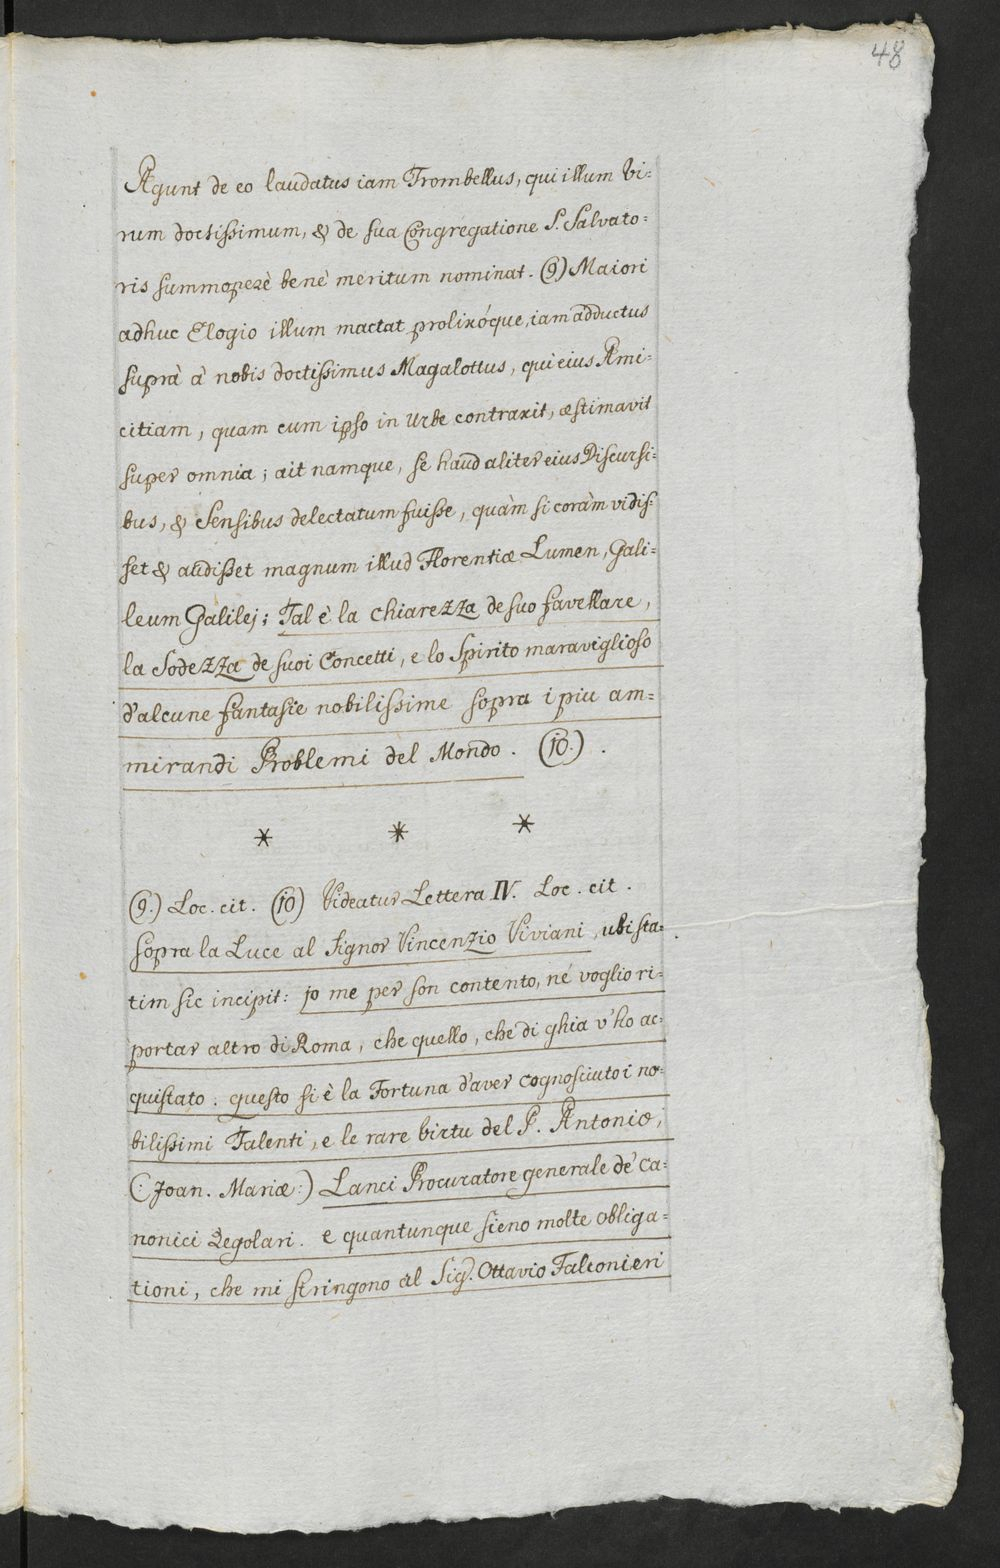 48
Agunt de eo laudatus iam Trombellus, qui illum Vi=
rum doctissimum, & de sua Congregatione S. Salvato=
ris summoperè benè meritum nominat. (9) Maiori
adhuc Elogio illum mactat prolixóque, iam adductus
suprà à nobis doctissimus Magalottus, qui eius Ami=
citiam, quam cum ipso in Urbe contraxit, æstimavit
super omnia; ait namque, se haud aliter eius Discursi=
bus, & Sensibus delectatum fuisse, quàm si coràm vidis=
set & audisset magnum illud Florentiæ Lumen, Gali=
leum Galilej: Tal è la chiarezza de suo favellare,
la Sodezza de suoi Concetti, e lo Spirito maraviglioso
d'alcune fantasie nobilissime sopra i piu am=
mirandi Problemi del Mondo. (10.).
* * *
(9.) Loc. cit. (10) Videatur Lettera IV. Loc. cit.
sopra la Luce al Signor Vincenzio Viviani, ubi sta=
tim sic incipit: jo me per son contento, né voglio ri=
portar altro di Roma, che quello, che di ghia v'ho ac=
quistato. questo si è la Fortuna d'aver cognosciuto i no=
bilissimi Talenti, e le rare virtu del P. Antonio,
(Joan. Mariæ:) Lanci Procuratore generale dé Ca=
nonici Regolari. e quantunque sieno molte obliga=
tioni, che mi stringono al Sig. Ottavio Falconieri